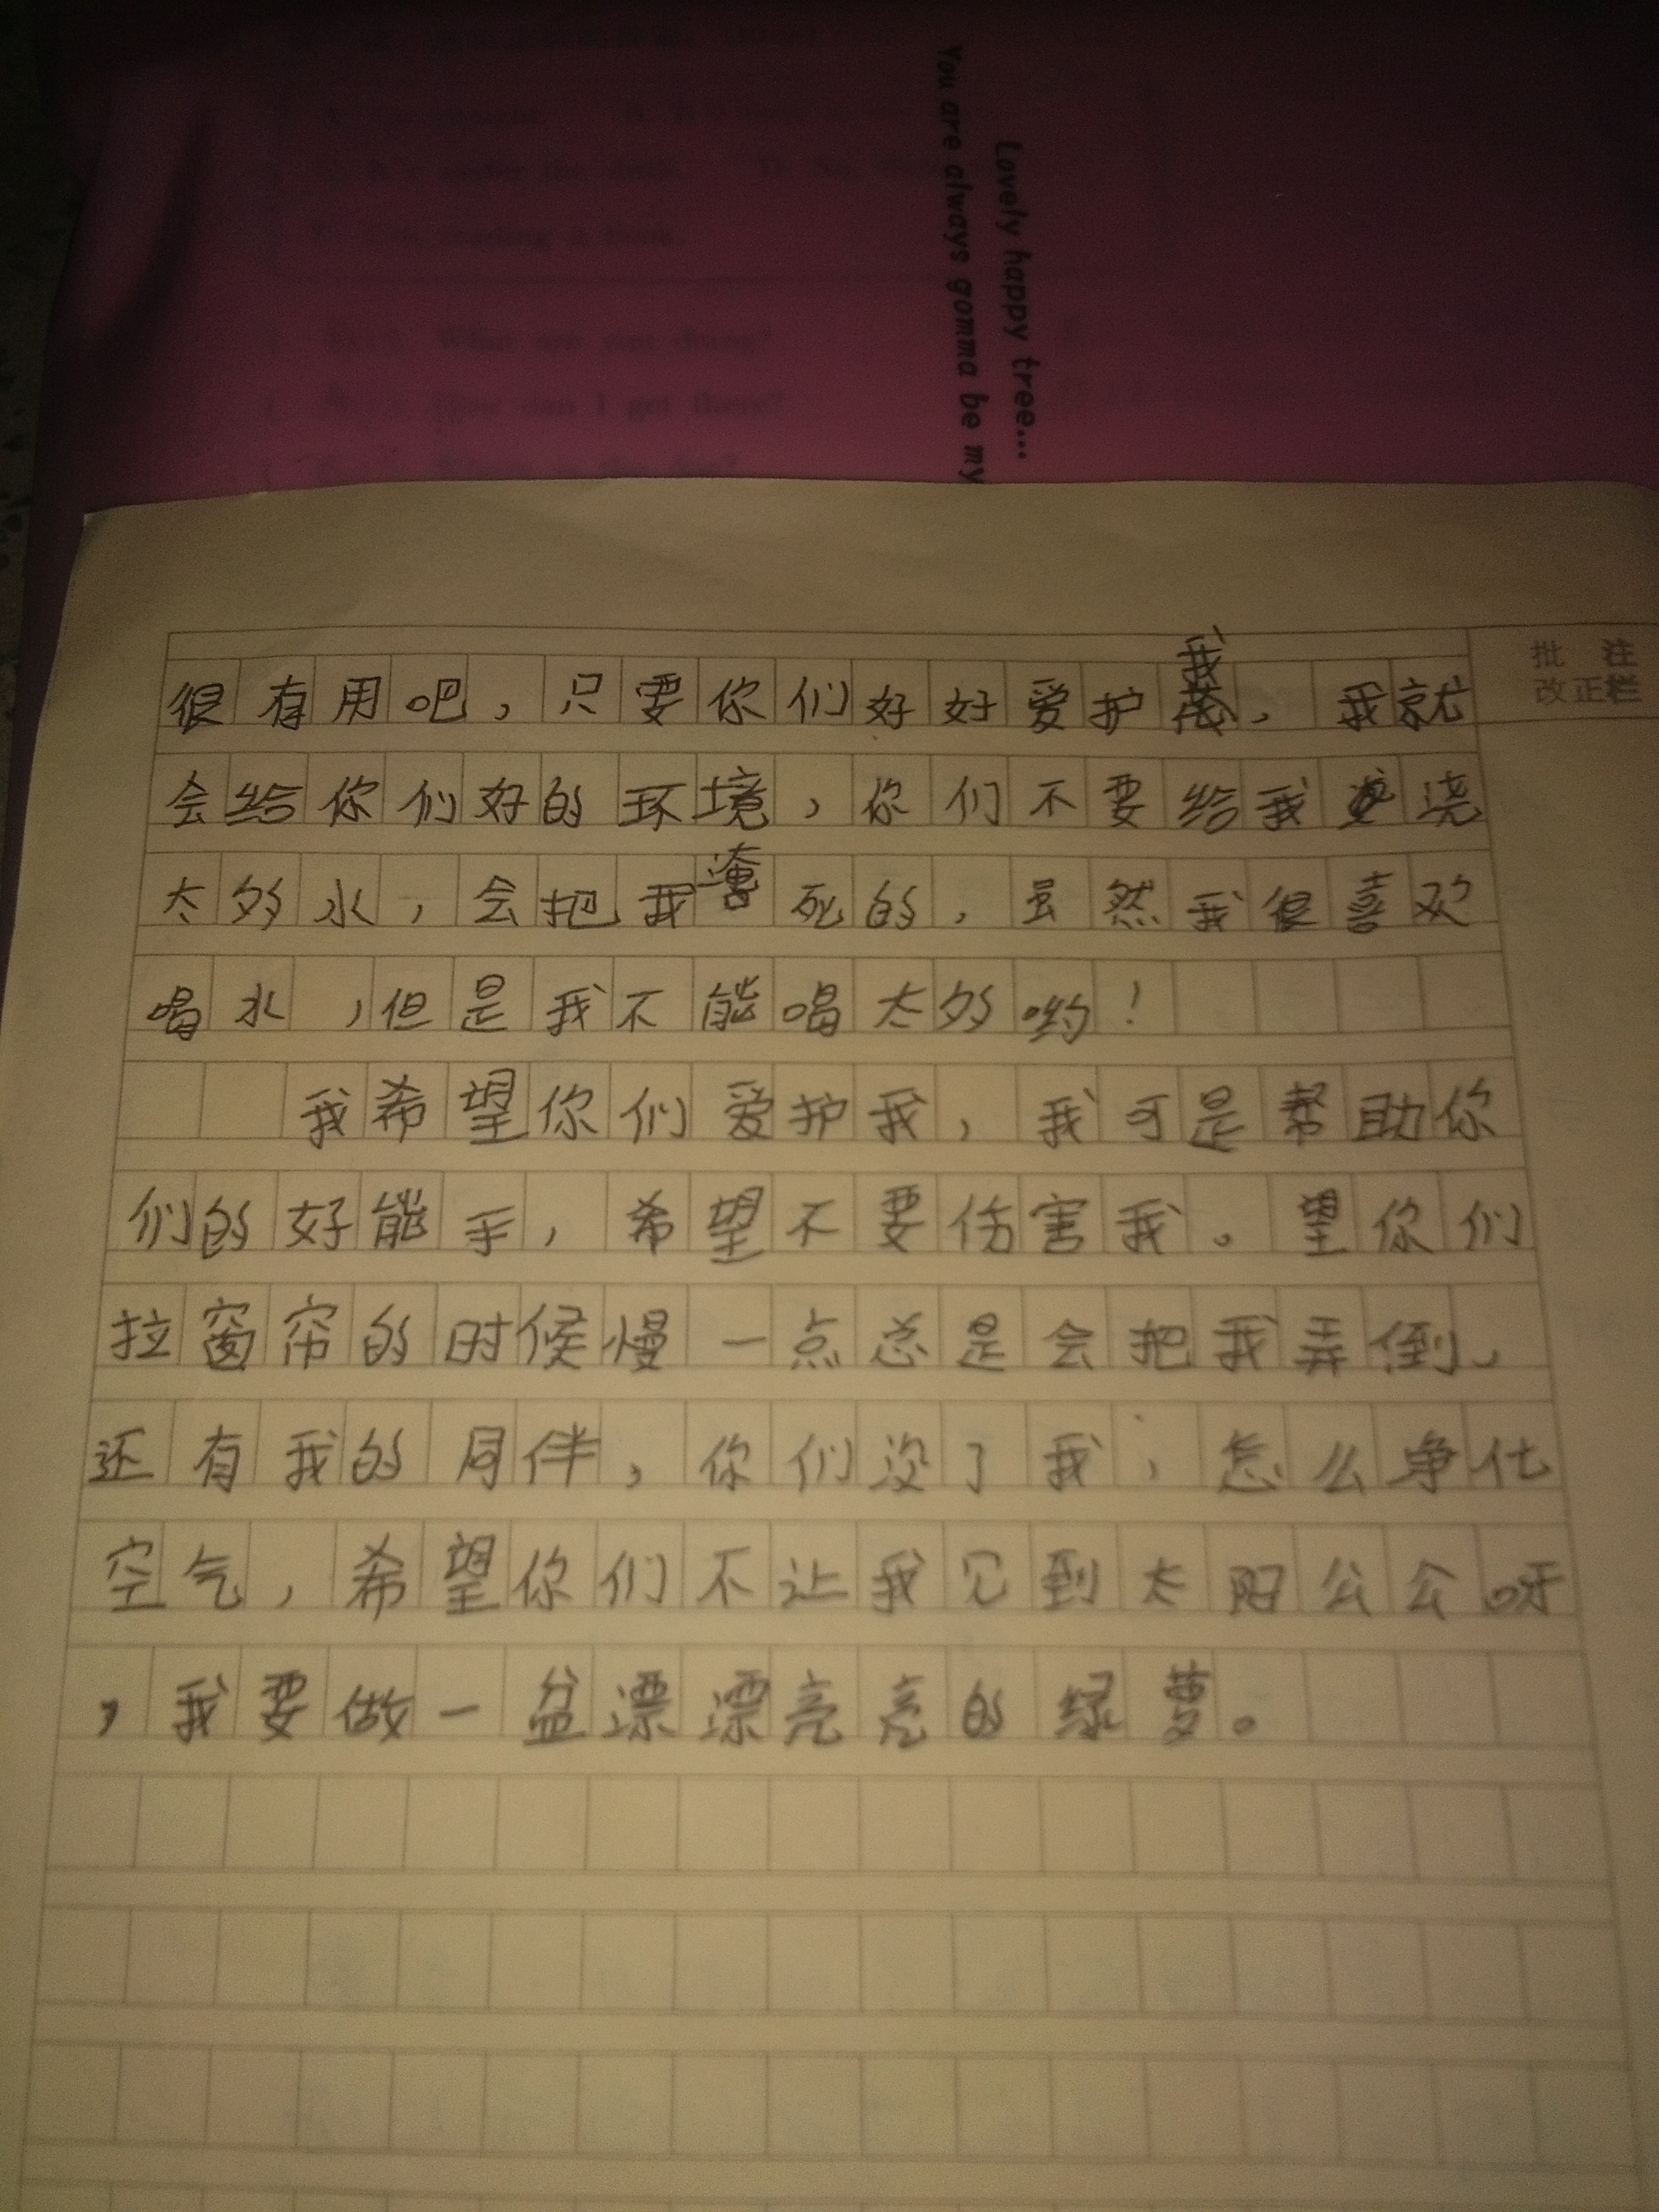 Lovely happy tree...
You are always gomma be my
批 注
改正栏
很有用吧，只要你们好好爱护我，我就
会给你们好的环境，你们不要给我浇
太多水，会把我淹死的，虽然我很喜欢
喝水，但是我不能喝太多哟！
我希望你们爱护我，我可是帮助你
们的好能手，希望不要伤害我。望你们
拉窗帘的时候慢一点总是会把我弄倒，
还有我的同伴，你们没了我，怎么争化
空气，希望你们不让我见到太阳公公呀
，我要做一盆漂漂亮亮的绿萝。